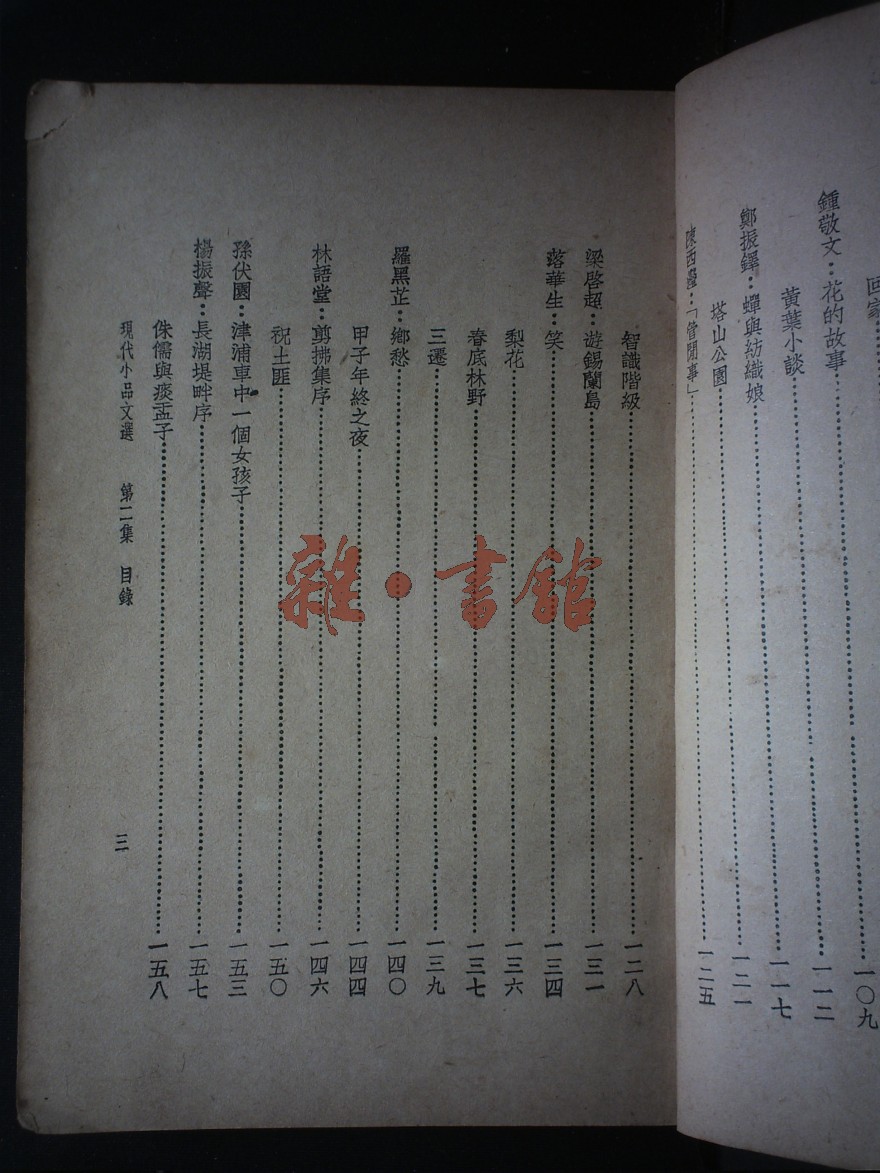 回家……一〇九
鍾敬文：花的故事……一一二
黃葉小談……一一七
鄭振鐸：蟬與紡織娘……一二一
塔山公園
陳西瀅：「管閒事」……一二五
智識階級……一二八
梁啓超：遊錫蘭島……一三一
落華生：笑……一三四
梨花……一三六
春底林野……一三七
三遷……一三九
羅黑芷：鄉愁……一四〇
甲子年終之夜……一四四
林語堂：剪拂集序……一四六
祝土匪……一五〇
孫伏園：津浦車中一個女孩子……一五三
楊振聲：長湖堤畔序……一五七
侏儒與痰盂子……一五八
現代小品文選 第二集 目錄 三
雜·書館